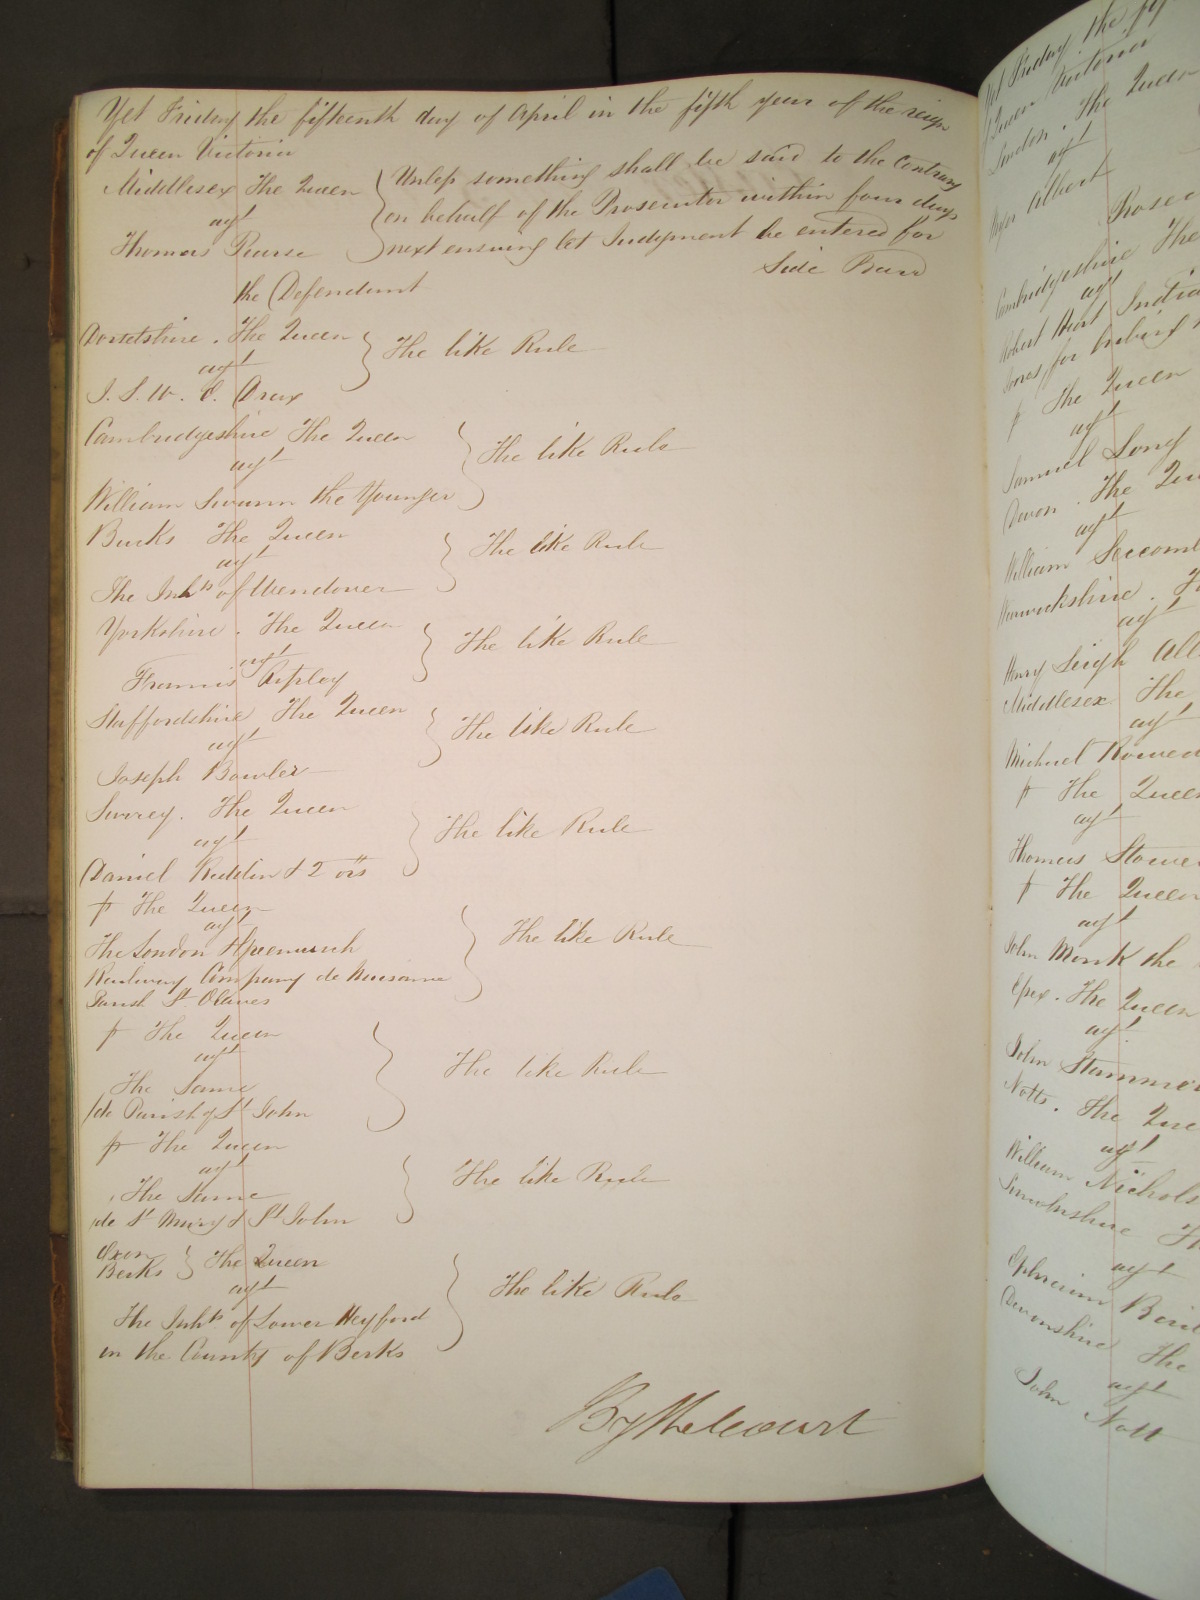 Yet Friday the fifteenth day of April in the fifth year of the reign
of Queen Victoria
Middlesex The Queen
agt
Thomas Pearse
Unless something shall be said to the Contrary
on behalf of the Prosecutor within four days
next ensuing let Judgment be entered for
the Defendant
Side Bar
Dorsetshire . The Queen
agt
J. S. W. S. Drax
The like Rule
Cambridgeshire The Queen
agt
William Swann the Younger
The like Rule
Bucks The Queen
agt
The Inhts of Wendover
The like Rule
Yorkshire . The Queen
agt
Francis Ripley
The like Rule
Staffordshire The Queen
agt
Joseph Bowler
The like Rule
Surrey . The Queen
agt
Daniel Ruddin & 2 ors
The like Rule
The Queen
agt
The London & Greenwich
Railway Company de Nuisance
Parish St Olaves
The like Rule
The Queen
agt
The Same
de Parish of St John
The like Rule
The Queen
agt
The Same
de St Mary & St John
The like Rule
Oxon
Berks
The Queen
agt
The Inhts of Lower Heyford
in the County of Berks
The like Rule
By the Court
Yet Friday the
Queen Victoria
London . The Queen
agt
Albert
Cambridgeshire The
agt
Robert Hart
Jones for bribing
The Queen
agt
Samuel Long
Devon . The
agt
William Seccomb
Warwickshire .
agt
Henry Leigh
Middlesex The
agt
Michael
The Queen
agt
Thomas
The Queen
agt
John Monk the
Essex . The Queen
agt
John
Notts . The
agt
William Nichols
Lincolnshire
agt
Ephraim
Devonshire The
agt
John Nott